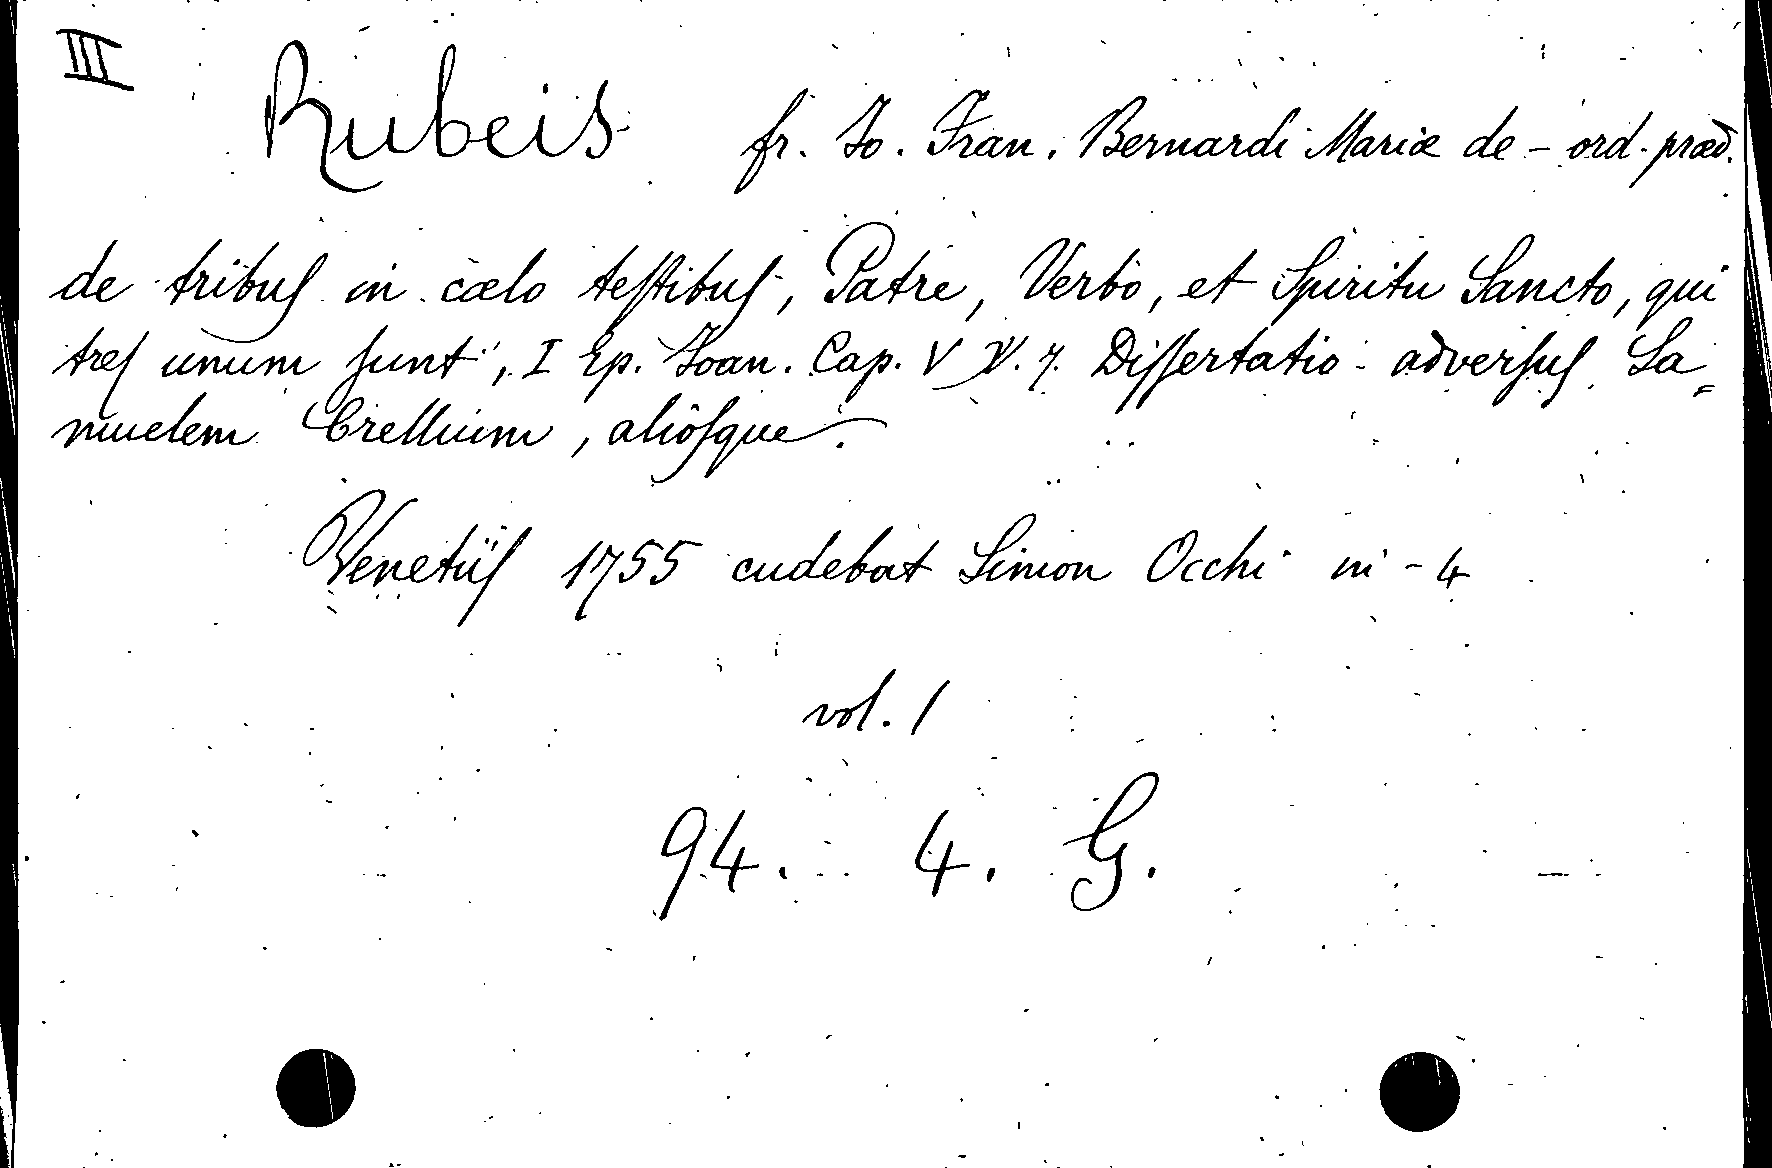 III
Rubeis fr. Io. Fran. Bernardi Mariæ de - ord. præd.
de tribuſ in cœlo teſtibuſ, Patre, Verbo, et Spiritu Sancto, qui
treſ unum ſunt, I Ep. Ioan. Cap. V V. 7. Diſſertatio adverſuſ Sa=
muelem Crellium, alioſque.
Venetiiſ 1755 cudebat Simon Occhi in - 4
vol. 1
94. 4. G.